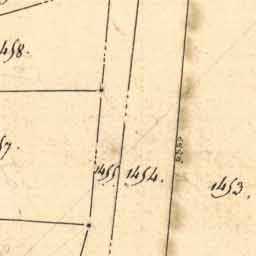 1458.
57.
1455 1454.
1453.